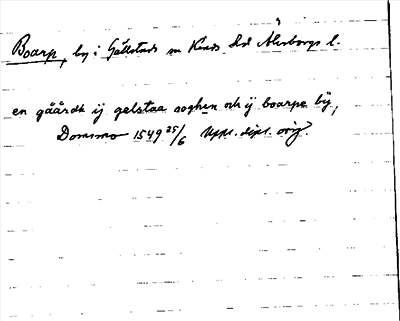 Boarp, by i Gällstads sn Kinds hd Älvsborgs l.
en gåårdh ij gelstaa soghen och ij boarpa bÿ,
Dommo 1549 25/6 Upps. dipl. orig.